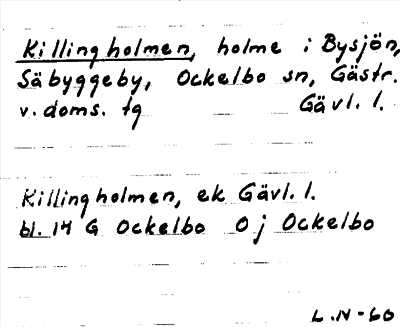 Killingholmen, holme i Bysjön,
Säbyggeby, Ockelbo sn, Gästr.
v. doms. tg Gävl. l.
Killingholmen, ek Gävl. l.
bl. 14 G Ockelbo O j Ockelbo
L.N-60